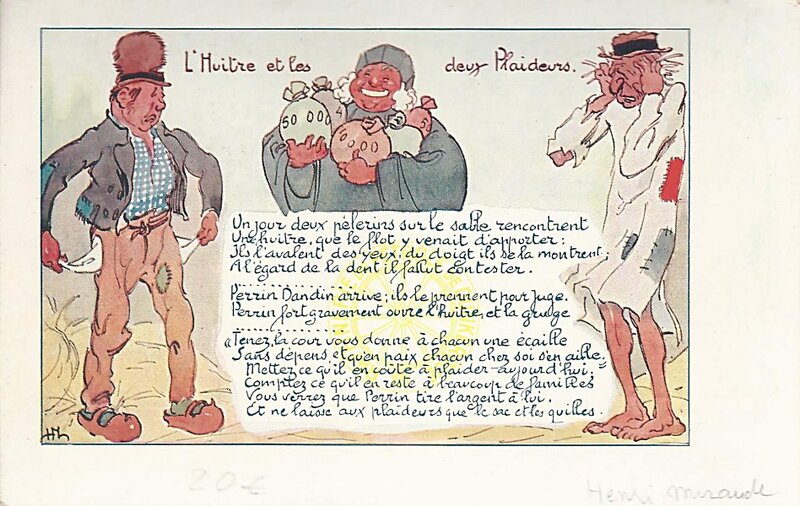 L'Huitre et les deux Plaideurs.
50 000
0 000
Un jour deux pèlerins sur le sable rencontrent
Une huitre, que le flot y venait d'apporter :
Ils l'avalent des yeux, du doigt ils se la montrent;
A l'égard de la dent il fallut contester.
. . . . . . . . . . . . . .
Perrin Dandin arrive; ils le prennent pour Juge.
Perrin fort gravement ouvre l'huitre, et la gruge
. . . . . . . . . . . . . .
"Tenez, la cour vous donne à chacun une écaille
Sans dépens et qu'en paix chacun chez soi s'en aille.
Mettez ce qu'il en coûte à plaider aujourd'hui;"
Comptez ce qu'il en reste à beaucoup de familles
Vous verrez que Perrin tire l'argent à lui.
Et ne laisse aux plaideurs que le sac et les quilles.
HM
20 €
Henri Mirande